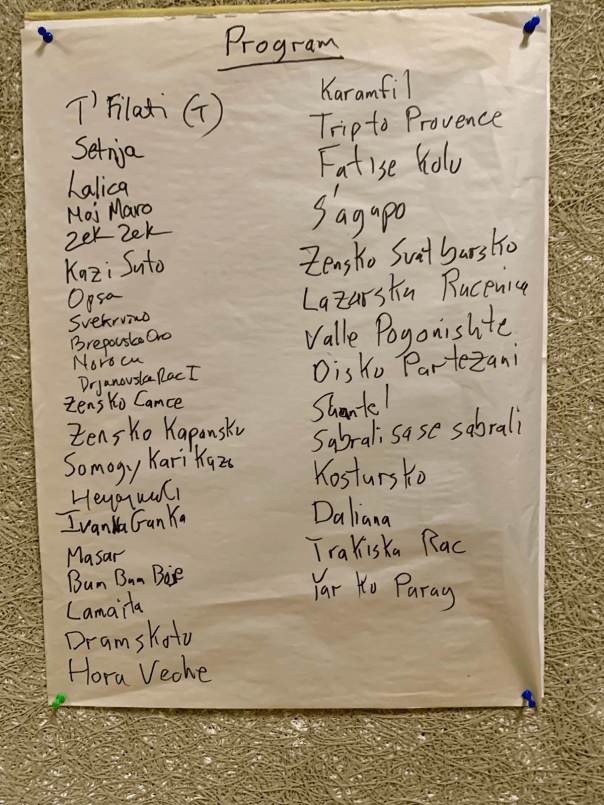 Program
T' Filati (T)
Setnja
Lalica
Moj Maro
Zek Zek
Kazi Suto
Opsa
Svekrvino
Brepovsko Oro
Norocu
Drjanovska Rac I
Zensko Camce
Zensko Kapansku
Somogy Kari Kazo
Ivanka Ganka
Masar
Bum Bum Boje
Lamaita
Dramskoto
Hora Veche
Karamfil
Trip to Provence
Fatise Kolo
S'agapo
Zensko Svatbarsko
Lazarska Racenica
Valle Pogonishte
Disko Partezani
Shantel
Sabrali sa se sabrali
Kostursko
Daliana
Trakiska Rac
Yar ko Paray